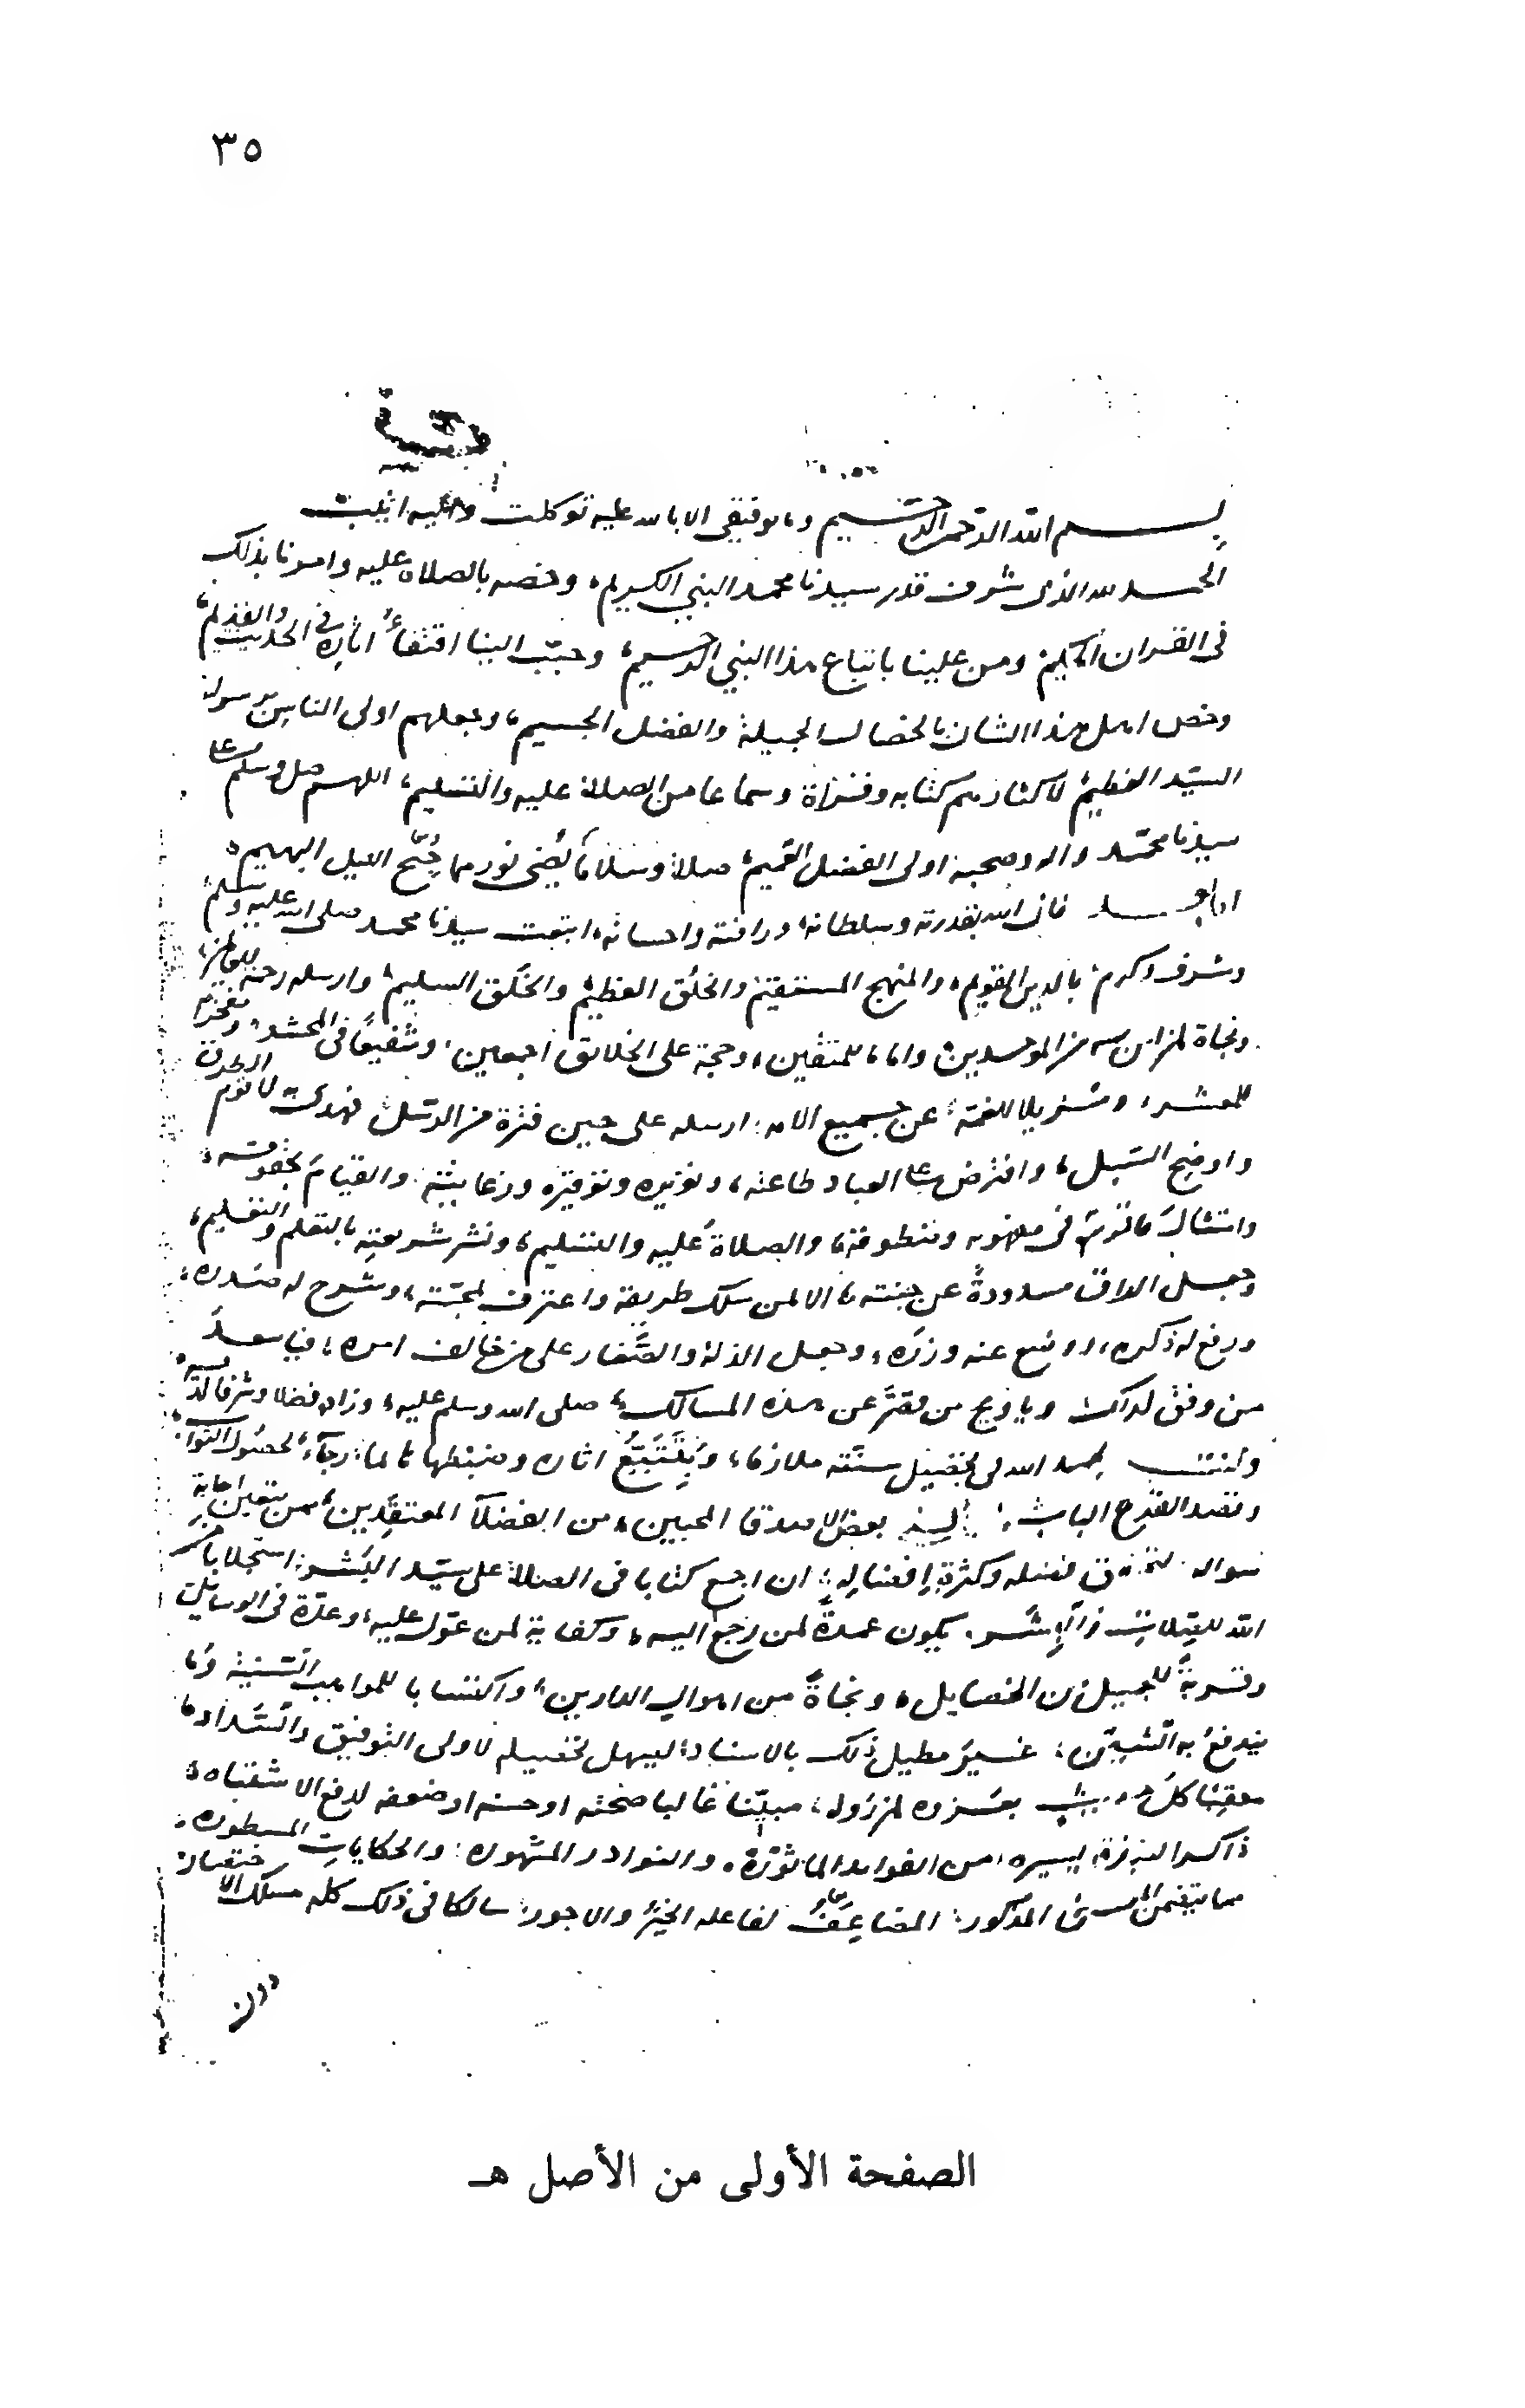 ٣٥
بسم الله الرحمن الرحيم وما توفيقي الا بالله عليه توكلت واليه انيب
الحمد لله الذى شرف قدر سيدنا محمد النبي الكريم، وخصه بالصلاة عليه وامرنا بذلك
فى القران الحكيم ومن علينا باتباع هذا النبي الرحيم، وحبّب الينا اقتفاء اثاره فى الحديث والقديم،
وخص اهل هذا الشان بالخصال الجميلة والفضل الجسيم، وجعلهم اولى الناس برسوله
السيّد العظيم لاكثارهم كتابه وقراة وسماعا من الصلاة عليه والتسليم، اللهم صل وسلم على
سيدنا محمّد واله وصحبه اولى الفضل العميم صلاة وسلاما يُضى نورهما جُنح الليل البهيم،
اما بعد فان الله بقدرته وسلطانه، ورافته واحسانه، ابتعث سيدنا محمد صلى الله عليه وسلم
وشرف وكرم بالدين القويم، والمنهج المستقيم والخلق العظيم والخَلق السليم، وارسله رحمة للعالمين،
ونجاة لمن امن به من الموحدين واماما للمتقين، وحجة على الخلائق اجمعين، وشفيعًا فى المحشر، ومفخرا
للمعشر، ومزيلا للغمة، عن جميع الامه، ارسله على حين فترة من الرسل، فهدى به لاقوم الطرق
واوضح السّبل، وافترض على العباد طاعته، وتعزيره وتوقيره ورعايته، والقيام بحقوقه،
وامتثال ما قرره فى مفهومه ومنطوقه، والصلاة عليه والتسليم، ونشر شريعته بالتعلم والتعليم،
وجعل الطرق مسدودةً عن جنته، الا لمن سلك طريقه واعترف بمحبّته، وشرح له صدره،
ورفع له ذكره، ووضع عنه وزره، وجعل الذلة والصَّغار على من خالف امره، فيا سعدَ
من وفق لذلك وياويح من قصّر عن هذه المسالك، صلى الله وسلم عليه، وزاده فضلا وشرفا لديه
وكنت بحمد الله لى بتحصيل سنّته ملازما، وبِتَتَبُّع اثاره وضبطها عالما، رجآءً لحصول الثواب،
وقصد القرع الباب، بعض الاصدقا المحبين، من الفضلآ المعتقَدين، ممن يتعين اجابة
سواله فضله وكثرة إفضالِه، ان اجمع كتابا فى الصلاة على سيّد البَشر، استجلابا من
الله يكون عمدةً لمن رجع اليه، وكفاية لمن عوّل عليه، وعدّة فى الوسايل
وقربةً للجميل من الخصايل، ونجاةً من اهوال الدارين، واكتسابا للمواهب السّنية وما
يندفعُ به الشّين، غير مطيل ذلك بالاسناد، ليسهل تحصيله لاولى التوفيق والسّداد،
معقبًا كلَّ حديث بعَزوه لمن رَواه، مبيّنا غالبا صحّته او حسنه او ضعفه لدفع الاشتباه،
ذاكرا لنبذة يسيره، من الفوايد الماثوُرة، والنوادر المشهوره، والحكايات المسطوره،
مما يتضمن المعنى المذكور، المضاعِفُ لفاعله الخيرَ والاجور، سالكا فى ذلك كله مسلك الاختصار
دون
الصفحة الأولى من الأصل هـ